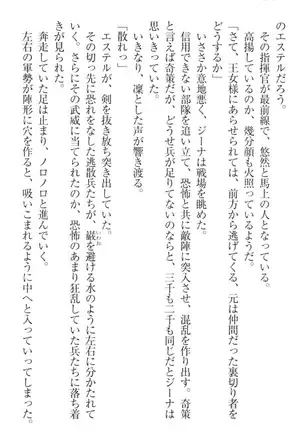 のエステルだろう。
その指揮官が最前線で、悠然と馬上の人となっている。
高揚しているのか、幾分顔も火照っているようだ。
「さて、王女様にあらせられては、前方から逃げてくる、元は仲間だった裏切り者を
どうするか」
いささか意地悪く、ジーナは戦場を眺めた。
信用できない部隊を追い立て、恐怖と共に敵陣に突入させ、混乱を作り出す。奇策
と言えば奇策だが、どうせ兵が足りてないのならと、三千も二千も同じだとジーナは
思いきっていた。
「散れっ」
いきなり、凜とした声が響き渡る。
エステルが、剣を抜き放ち突き出していた。
その切っ先に恐れをなした逃散兵たちが、巌を避ける水のように左右に分かたれて
いく。さらにその武威に当てられたのか、恐怖のあまり狂乱していた兵たちに落ち着
きが見られた。
奔走していた足は止まり、ノロノロと進んでいく。
左右の軍勢が陣形に穴を作ると、吸いこまれるように中へと入っていってしまった。